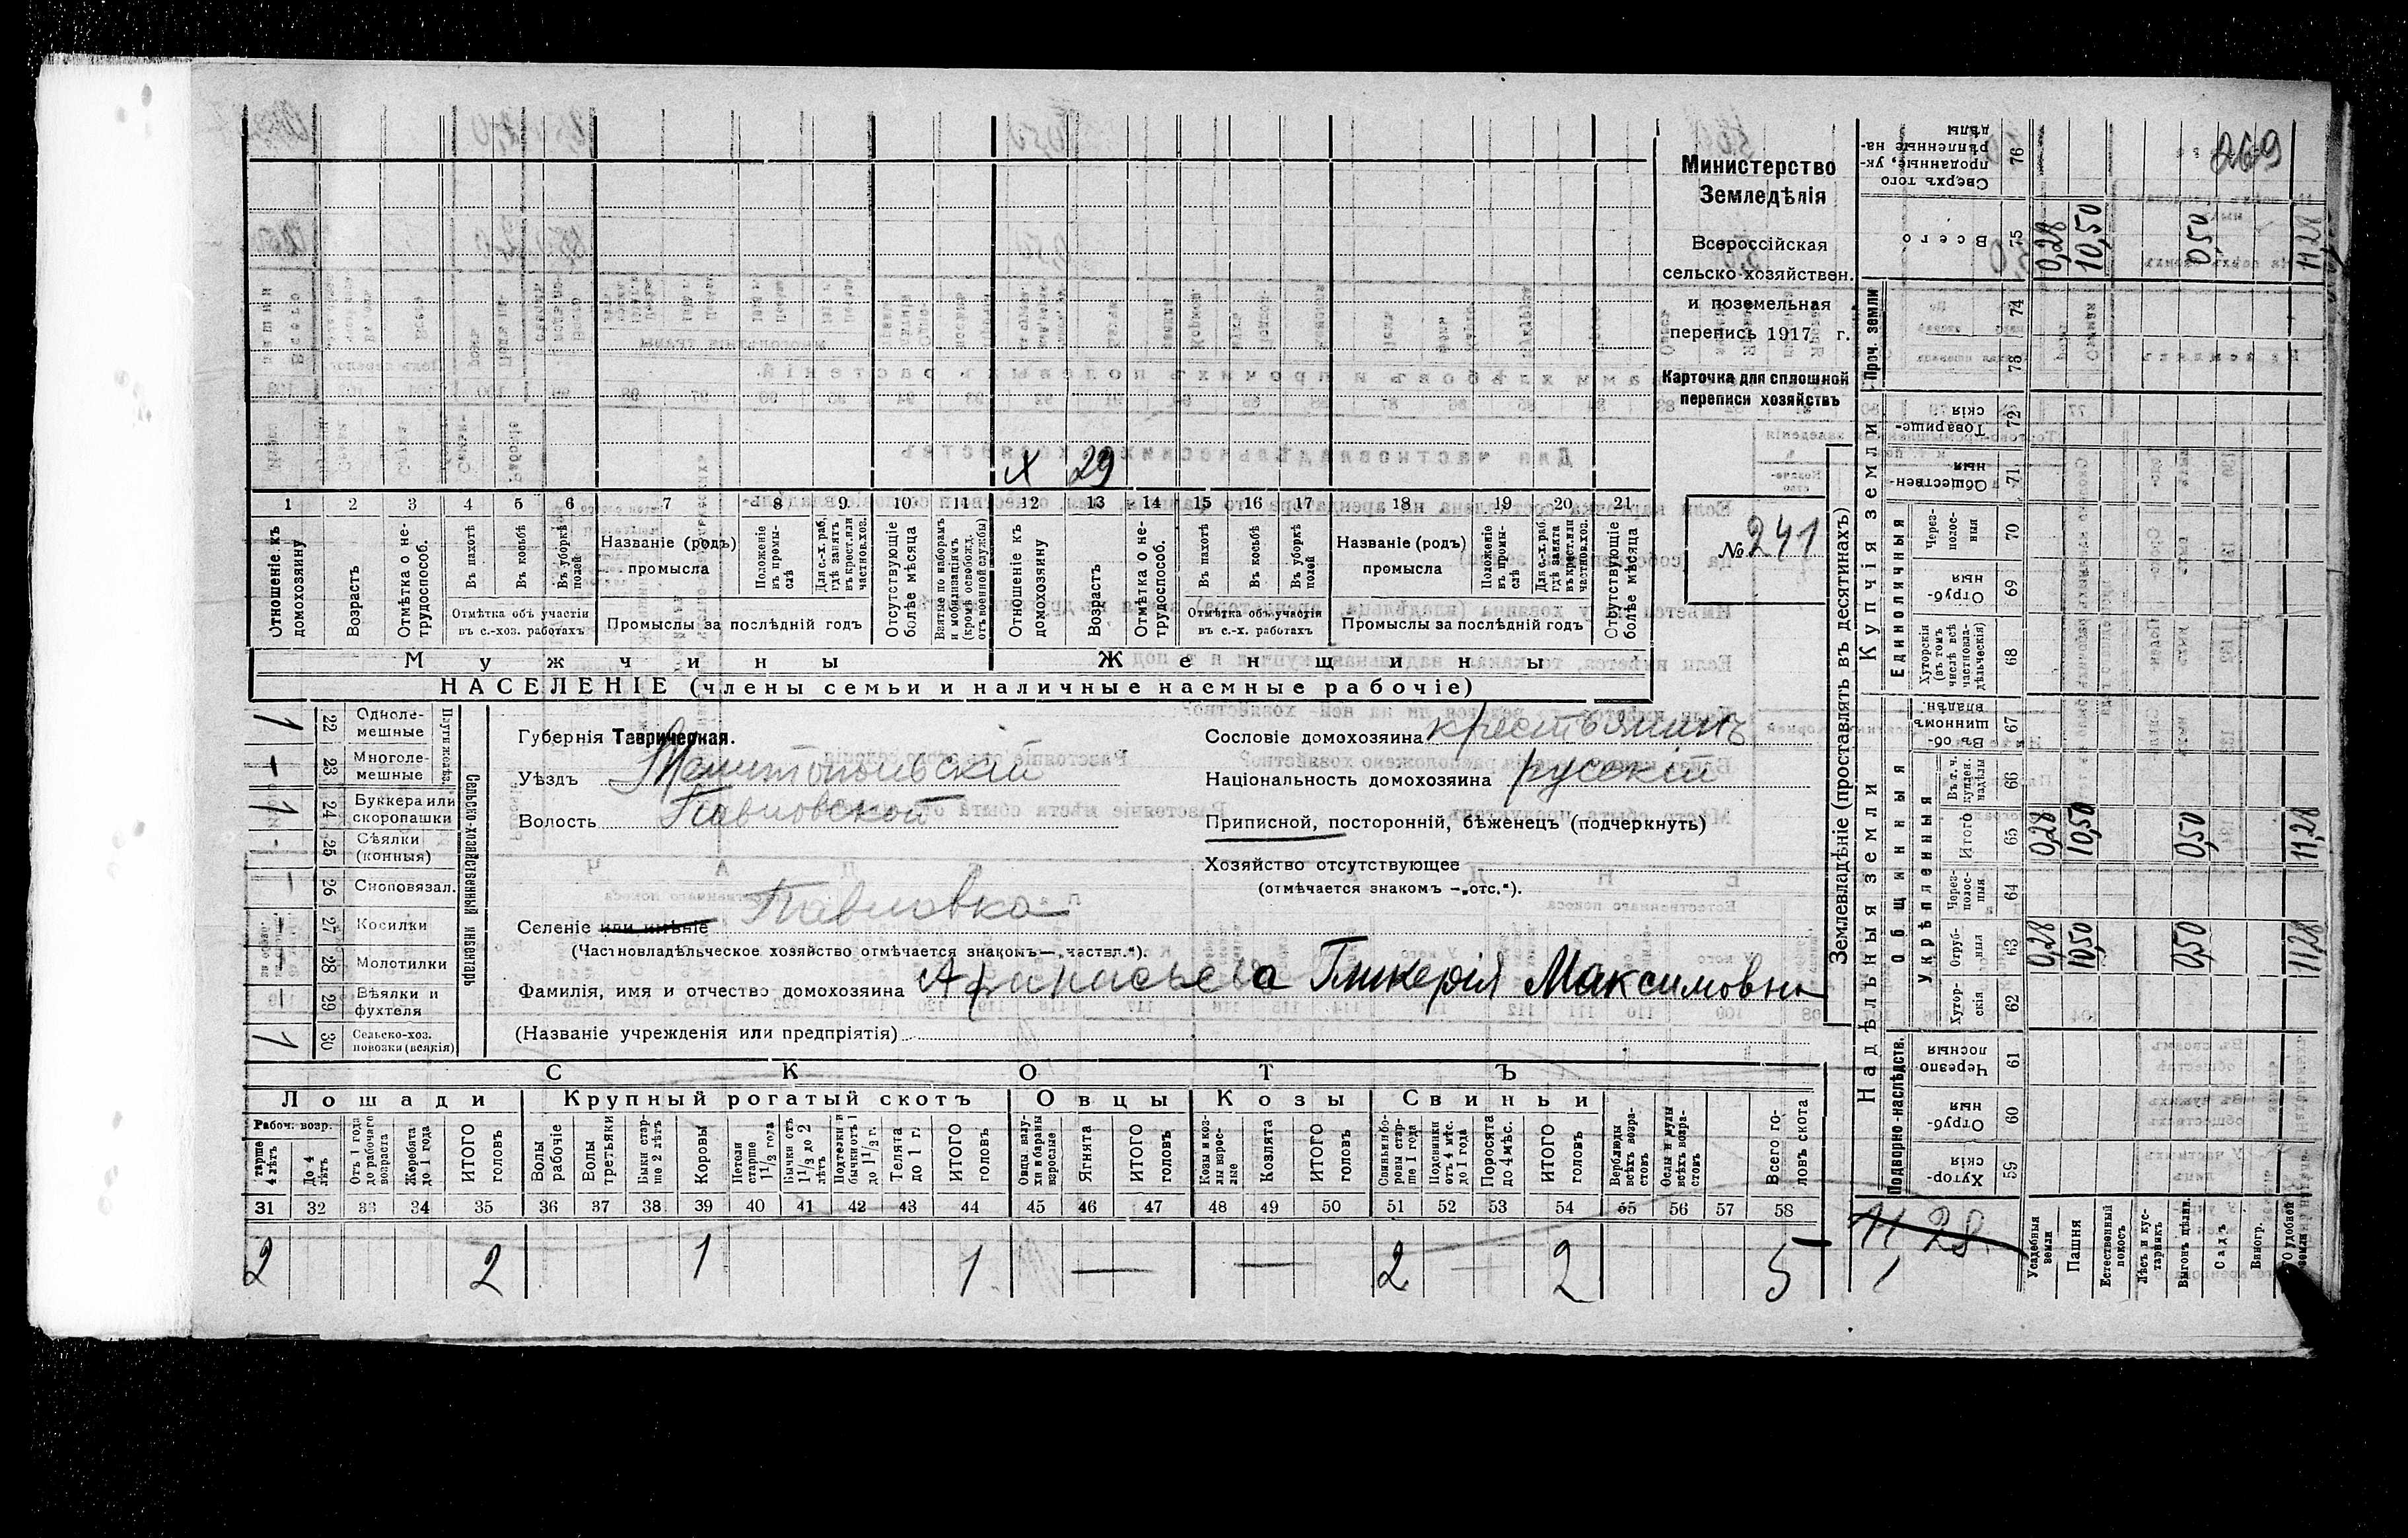 Министерство
Земледѣлія
Всероссійская
сельско-хозяйствен.
и поземельная
перепись 1917 г.
Карточка для сплошной
переписи хозяйствъ
№ 241
269
х 29
1 2 3 4 5 6 7 8 9 10 11 12 13 14 15 16 17 18 19 20 21
Отношеніе къ домохозяину
Возрастъ
Отмѣтка о нетрудоспособ.
Въ пахотѣ
Въ косьбѣ
Въ уборкѣ полей
Отмѣтка объ участіи
въ с.-хоз. работахъ
Названіе (родъ)
промысла
Положеніе въ промыслѣ
Для с.-х. раб. гдѣ занятъ въ крест. или частнов. хоз.
Промыслы за послѣдній годъ
Отсутствующіе болѣе мѣсяца
Взятые по наборамъ и мобилизаціямъ (кромѣ освобожд. отъ военной службы)
Отношеніе къ домохозяину
Возрастъ
Отмѣтка о нетрудоспособ.
Въ пахотѣ
Въ косьбѣ
Въ уборкѣ полей
Отмѣтка объ участіи
въ с.-х. работахъ
Названіе (родъ)
промысла
Положеніе въ промыслѣ
Для с.-х. раб. гдѣ занята въ крест. или частнов. хоз.
Промыслы за послѣдній годъ
Отсутствующіе болѣе мѣсяца
Мужчины Женщины
НАСЕЛЕНІЕ (члены семьи и наличные наемные рабочіе)
Сельско-хозяйственный инвентарь
1 22 Однолемешные
- 23 Многолемешные
1 24 Буккера или скоропашки
- 25 Сѣялки (конныя)
- 26 Сноповязал.
- 27 Косилки
- 28 Молотилки
- 29 Вѣялки и фухтеля
1 30 Сельско-хоз. повозки (всякія)
Губернія Таврическая.
Уѣздъ Мелитопольскій
Волость Павловской
Селеніе или имѣніе Павловка
(Частновладѣльческое хозяйство отмѣчается знакомъ—„частвл.“).
Фамилія, имя и отчество домохозяина Афанасьева Гликерія Максимовна
(Названіе учрежденія или предпріятія)
Сословіе домохозяина крестьянинъ
Національность домохозяина русскій
Приписной, посторонній, бѣженецъ (подчеркнуть)
Хозяйство отсутствующее
(отмѣчается знакомъ —„отс.“).
СКОТЪ
Лошади Крупный рогатый скотъ Овцы Козы Свиньи
Рабоч. возр.
старше 4 лѣтъ
До 4 лѣтъ
Отъ 1 года до рабочаго возраста
Жеребята до 1 года
ИТОГО головъ
Волы рабочіе
Волы третьяки
Быки старше 2 лѣтъ
Коровы
Нетели старше 1 1/2 года
Бычки отъ 1 1/2 до 2 лѣтъ
Подтелки и бычки отъ 1 до 1 1/2 г.
Телята до 1 г.
ИТОГО головъ
Овцы, валухи и бараны взрослые
Ягнята
ИТОГО головъ
Козы и козлы взрослые
Козлята
ИТОГО головъ
Свиньи и боровы старше 1 года
Подсвинки отъ 4 мѣс. до 1 года
Поросята до 4 мѣс.
ИТОГО головъ
Верблюды всѣхъ возрастовъ
Ослы и мулы всѣхъ возрастовъ
Всего головъ скота
31 32 33 34 35 36 37 38 39 40 41 42 43 44 45 46 47 48 49 50 51 52 53 54 55 56 57 58
2 2 1 1 — — 2 — 2 5
Землевладѣніе (проставлять въ десятинахъ)
Надѣльныя земли
Купчія земли
Проч. земли
Подворно-наслѣдств.
Общинныя
Укрѣпленныя
Единоличныя
Сверхъ того проданные, укрѣпленные надѣлы 76
Всего 75
74
73
Товарищескія 72
Общественныя 71
Черезполосныя 70
Отрубныя 69
Хуторскія (въ томъ числѣ всѣ частновладѣльческія) 68
Въ общинномъ владѣн. 67
Въ т. ч. куплен. надѣлы 66
Итого 65
Черезполосныя 64
Отрубныя 63
Хуторскія 62
Черезполосныя 61
Отрубныя 60
Хуторскія 59
0,28 10,50 0,50 11,28
0,28 10,50 0,50 11,28
0,28 10,50 0,50 11,28
11,28
Усадебныя земли
Пашня
Естественный покосъ
Лѣсъ и кустарникъ
Выгонъ цѣлин.
Садъ
Виногр.